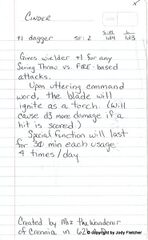 Cinder
+1 dagger SF: 2
Gives wielder +1 for any
Saving Throw vs. Fire-based
attacks.
Upon uttering command
word, the blade will
ignite as a torch. (Will
cause d3 more damage if a
hit is scored.)
Special function will last
for 30 min each usage
4 times/day.
Created by the Wanderer
of Crannia in 626
© copyright by Jody Fletcher